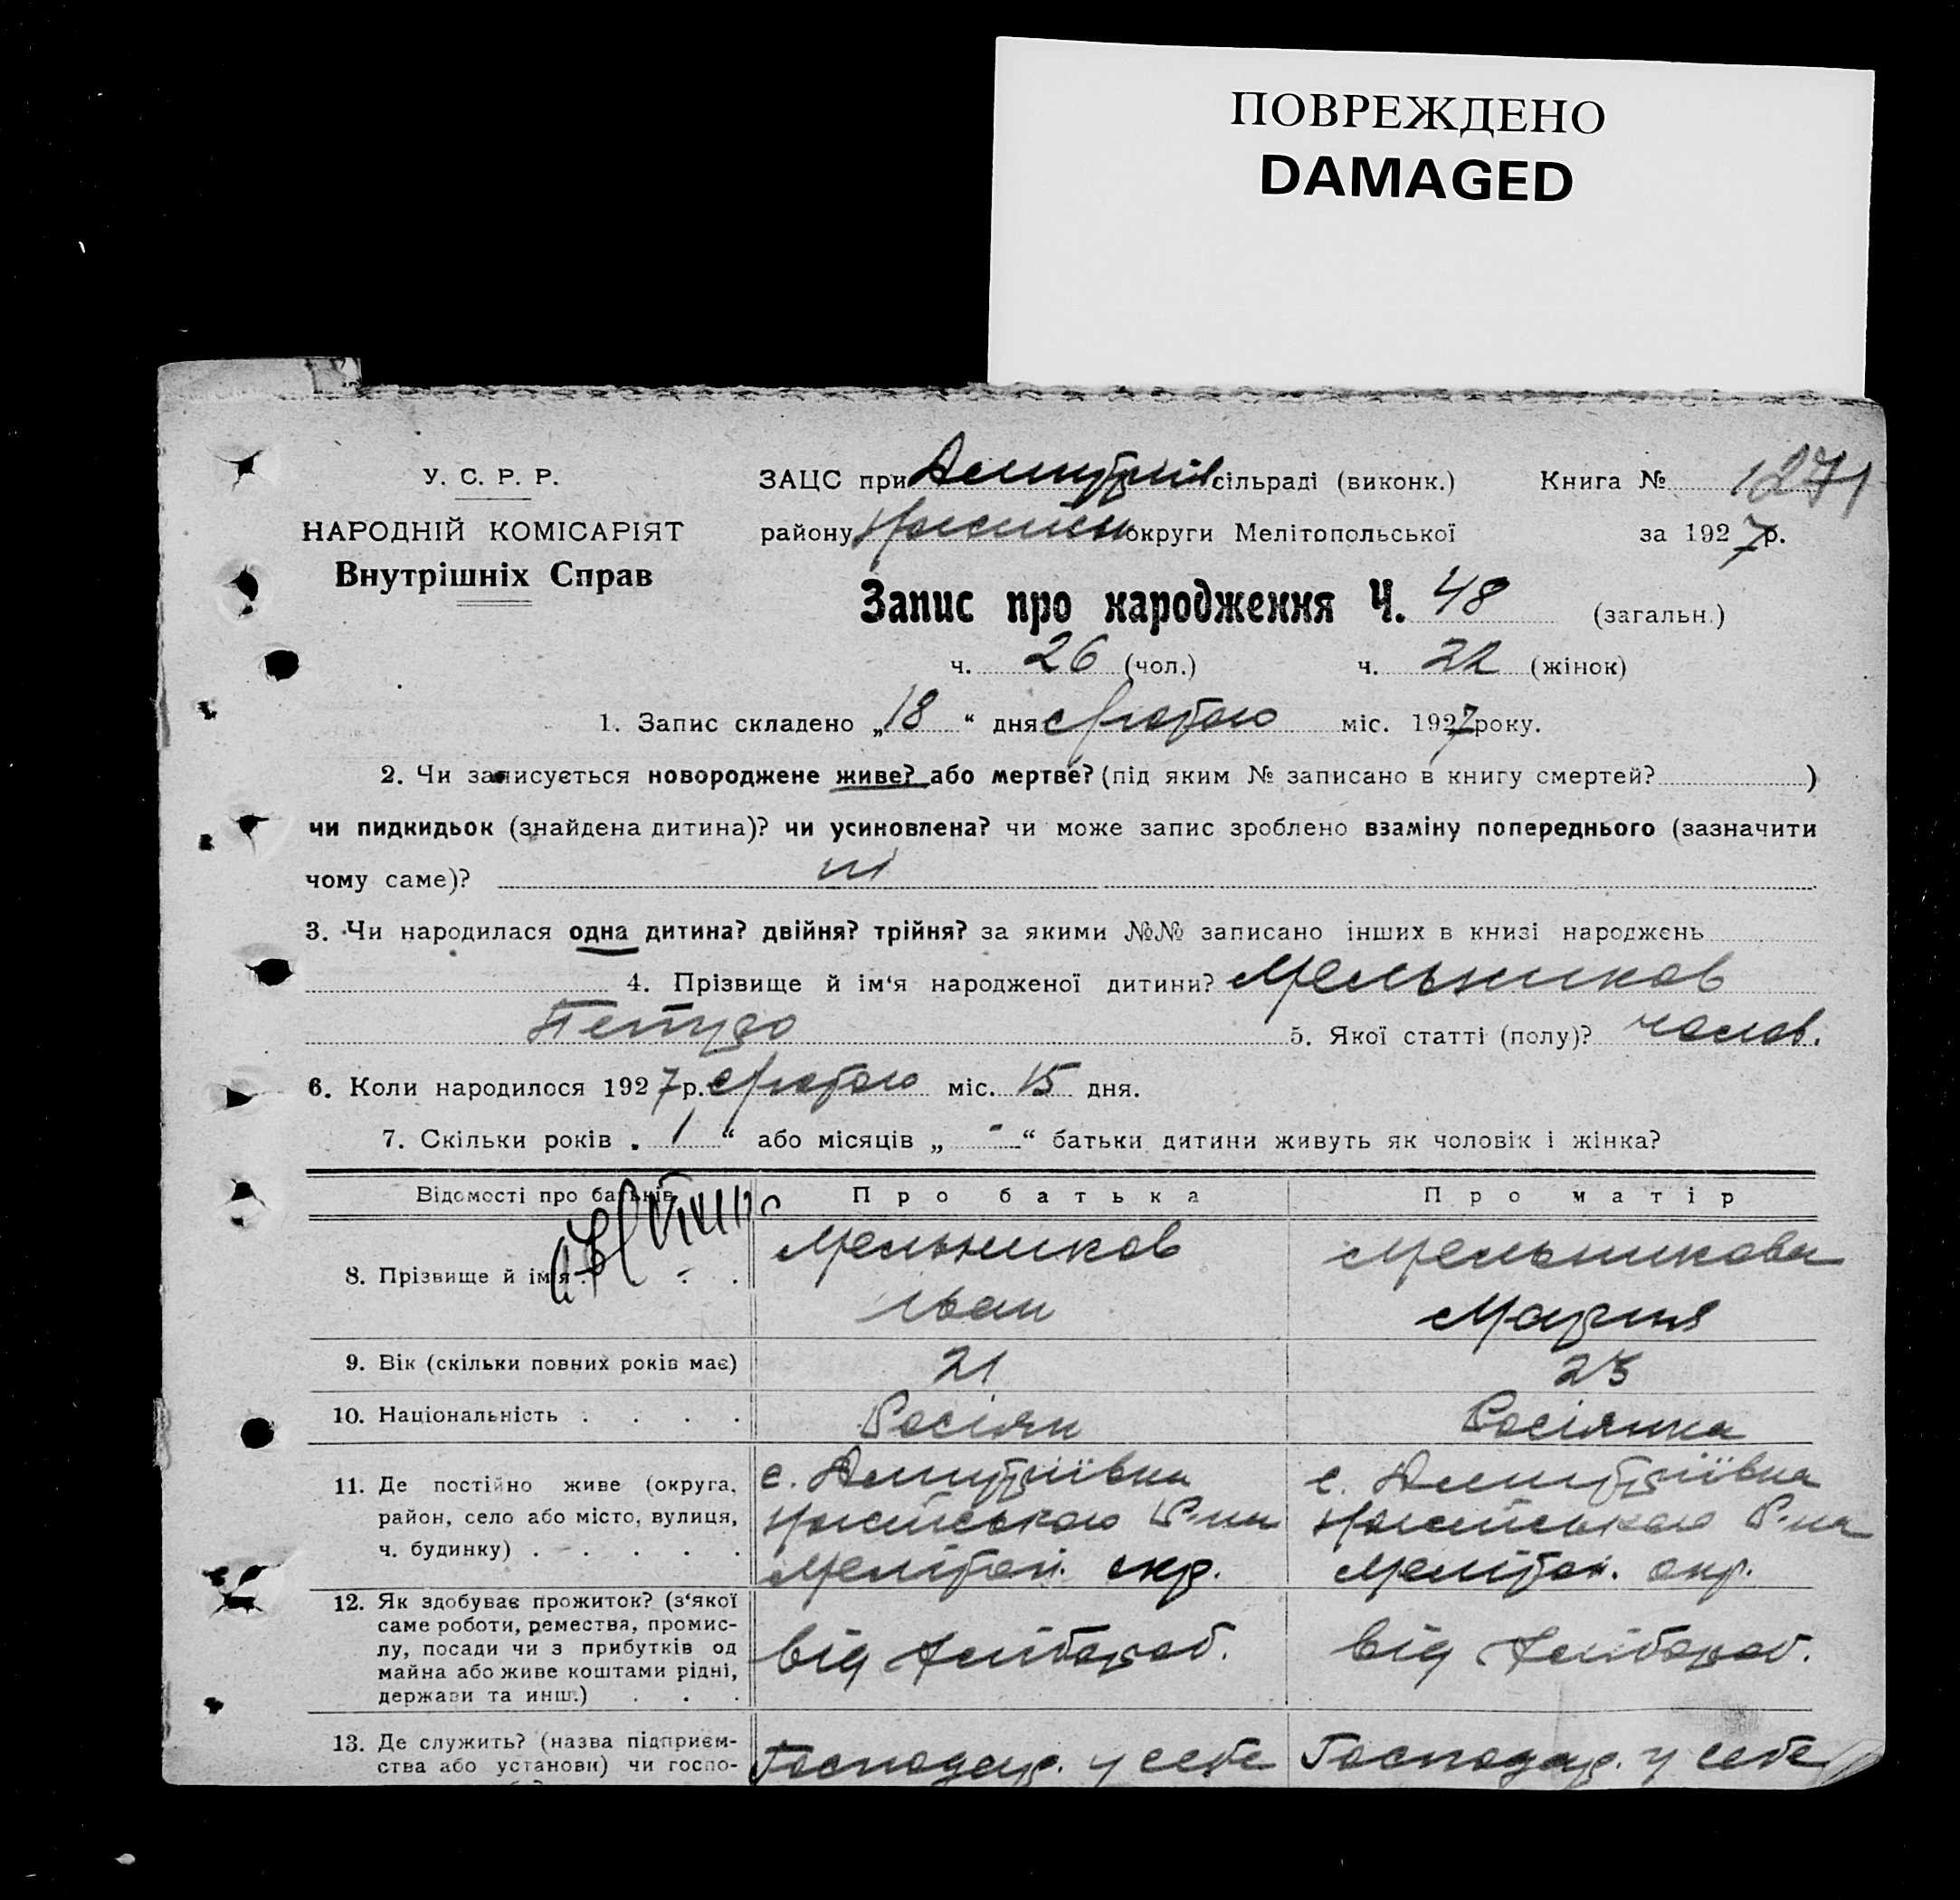 ПОВРЕЖДЕНО
DAMAGED
У. С. Р. Р.
НАРОДНІЙ КОМІСАРІЯТ
Внутрішніх Справ
ЗАЦС при Дмитріїв сільраді (виконк.)
Книга № 1271
району округи Мелітопольської
за 1927 р.
Запис про народження Ч. 48 (загальн.)
ч. 26 (чол.) ч. 22 (жінок)
1. Запис складено „18“ дня Лютого міс. 1927 року.
2. Чи записується новороджене живе? або мертве? (під яким № записано в книгу смертей? )
чи пидкидьок (знайдена дитина)? чи усиновлена? чи може запис зроблено взаміну попереднього (зазначити
чому саме)? ні
3. Чи народилася одна дитина? двійня? трійня? за якими №№ записано інших в книзі народжень
4. Прізвище й ім‘я народженої дитини? Мельников
Петро 5. Якої статті (полу)? чолов.
6. Коли народилося 1927 р. Лютого міс. 15 дня.
7. Скільки років „1“ або місяців „-“ батьки дитини живуть як чоловік і жінка?
Відомості про батьків Про батька Про матір
8. Прізвище й ім‘я Мельников Мельникова
Іван Мария
9. Вік (скільки повних років має) 21 23
10. Національність Росіян Росіянка
11. Де постійно живе (округа, с. Дмитріївка с. Дмитріївка
район, село або місто, вулиця, Р-на Р-на
ч. будинку) Мелітоп. окр. Мелітоп. окр.
12. Як здобуває прожиток? (з‘якої
саме роботи, ремества, промис-
лу, посади чи з прибутків од від хлібороб. від хлібороб.
майна або живе коштами рідні,
держави та инш.)
13. Де служить? (назва підприєм-
ства або установи) чи госпо- Господар. у себе Господар. у себе